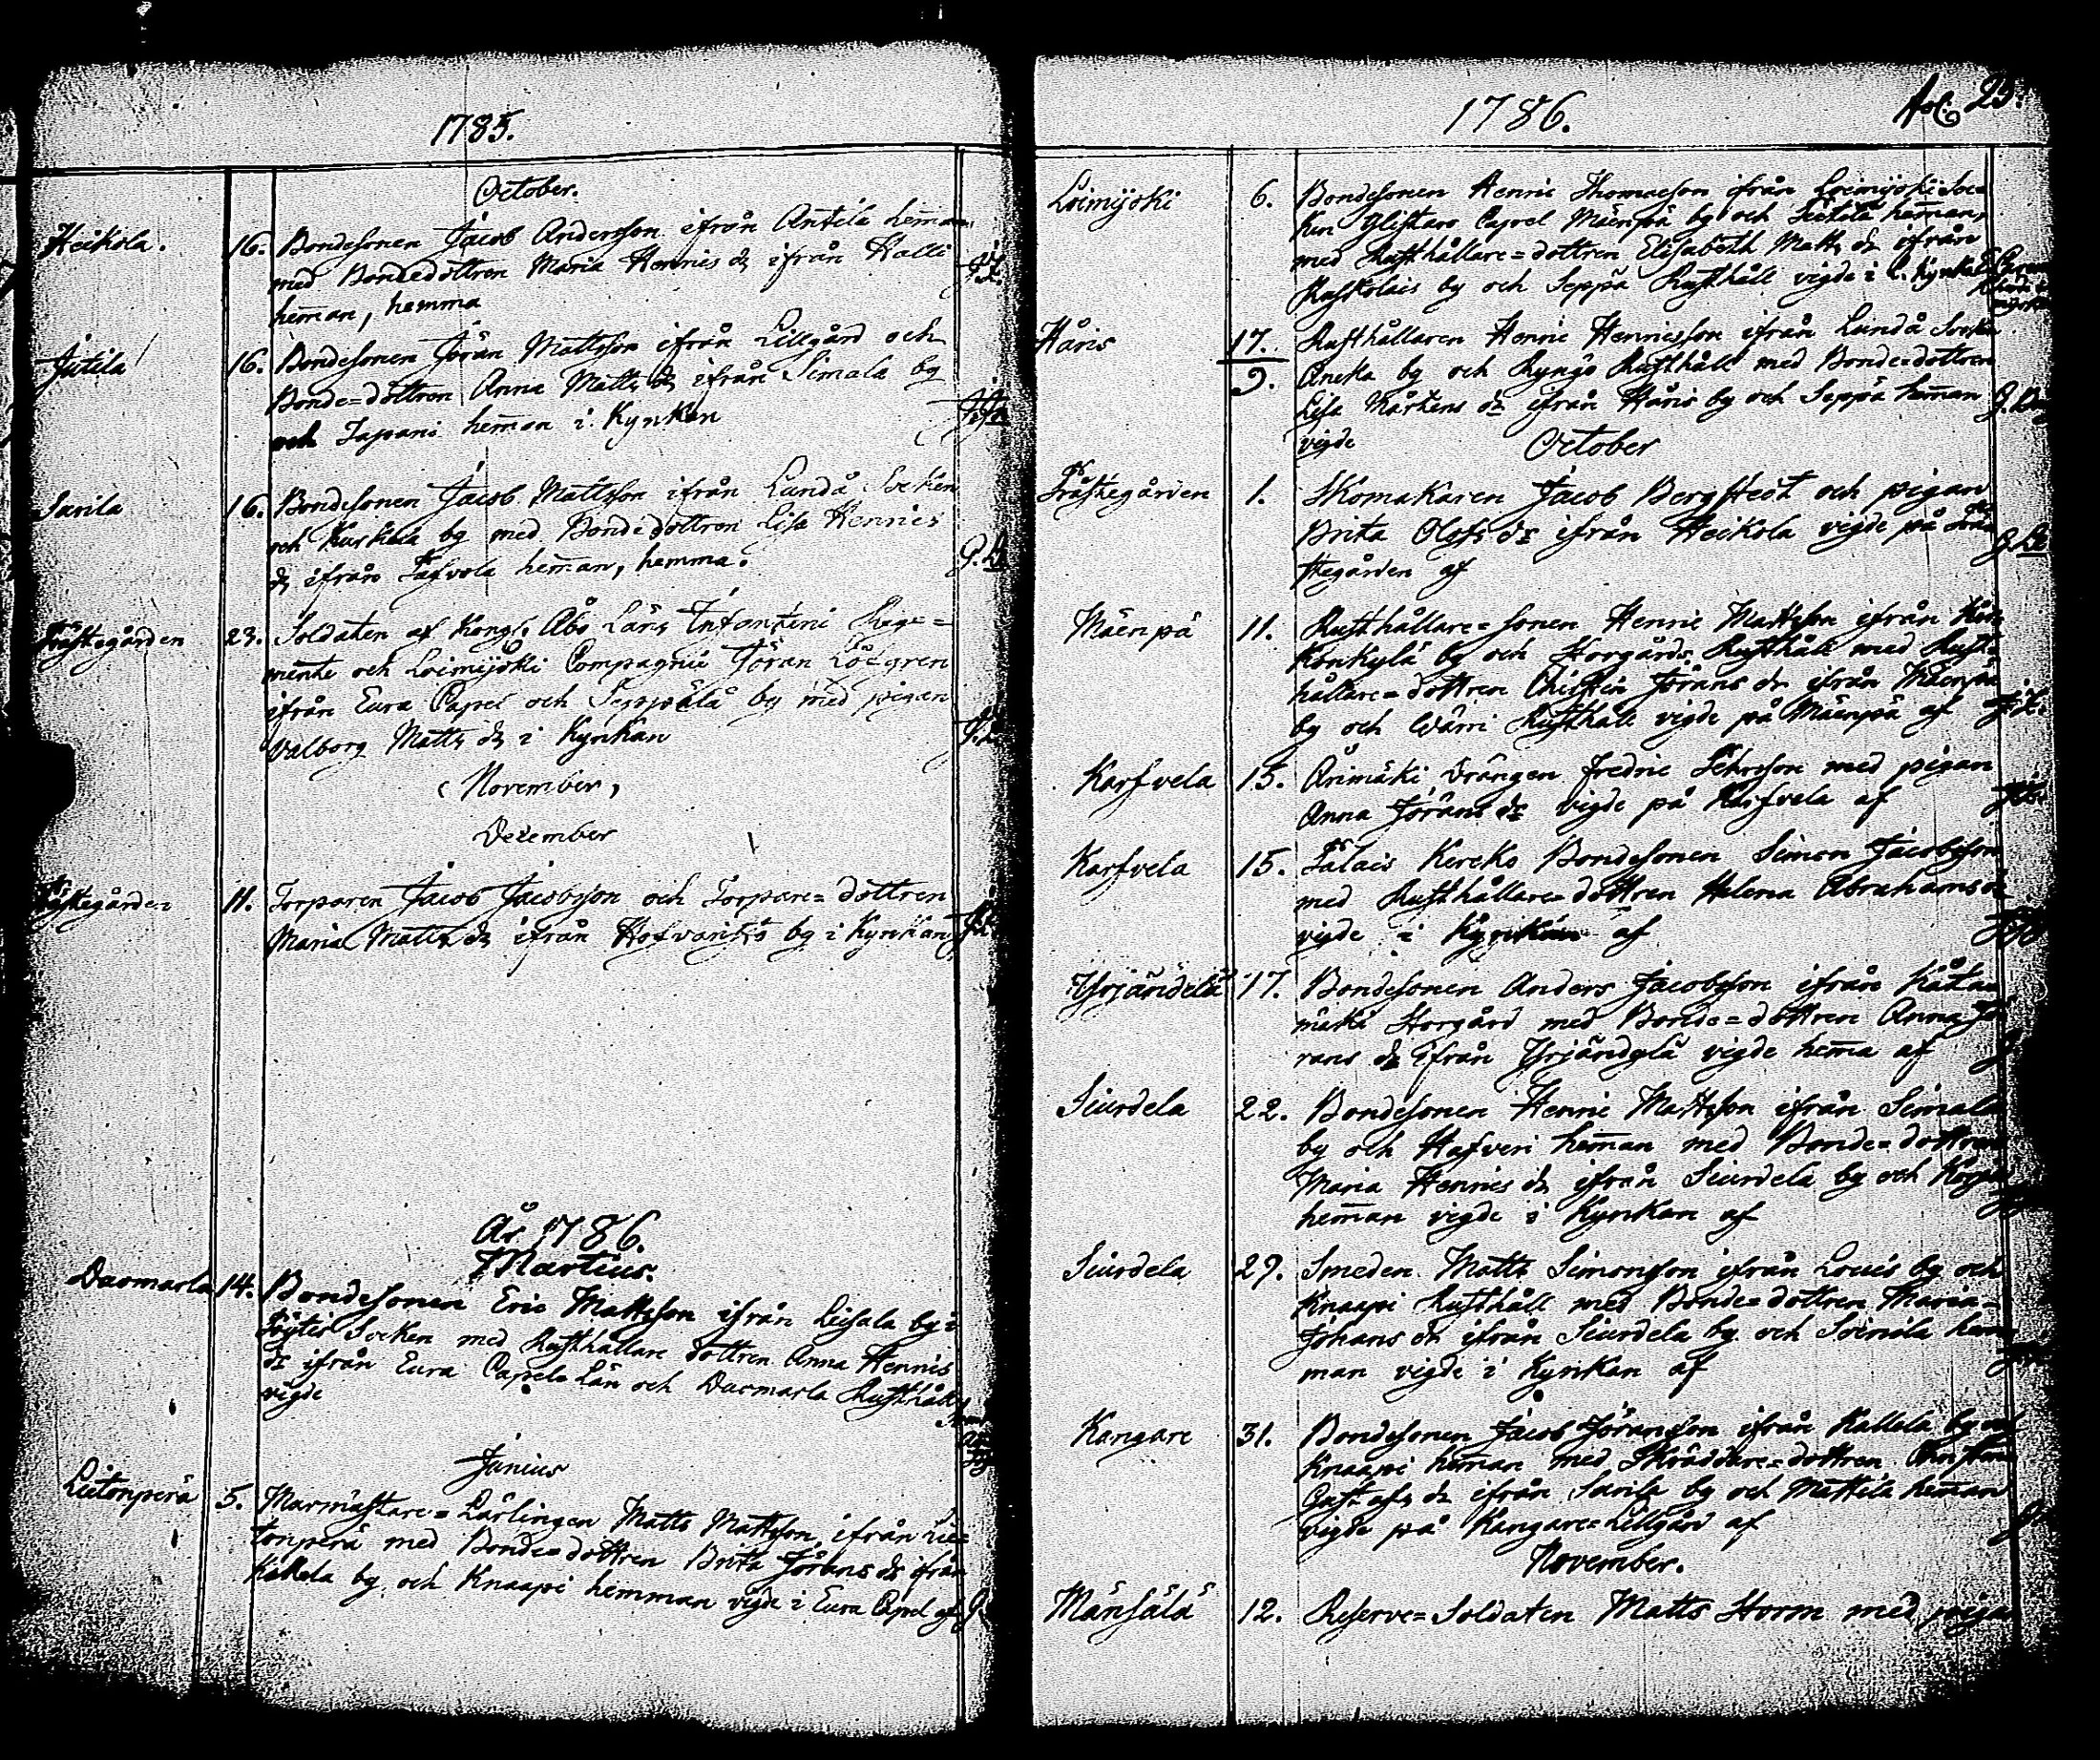 1785.
October.
Heikola. 16. Bondesonen Jacob Andersson ifrån Antila heman
med Bondedottren Maria Hennis dr ifrån Halli
heman, hemma
Jutila 16. Bondesonen Jöran Mattsson ifrån Lillgård och
Bonde=dottren Anna Matts dr ifrån Simala by
och Tapani heman i Kyrkan
Savila 16. Bondesonen Jacob Mattsson ifrån Lundå Socken
och Kurkela by med Bondedottren Lisa Hennics
dr ifrån heman, hemma.
Prästegården 23. Soldaten af Kongl. Åbo Läns Infanterie Rege=
mente och Loimijoki Compagnie Göran Löfgren
ifrån Eura Capel och Seppälä by med pigan
Valborg Matts dr i Kyrkan
November,
December
Prästegården 11. Torparen Jacob Jacobsson och Torpare=dottren
Maria Matts dr ifrån by i Kyrkan
År 1786.
Martius.
Davmarla 14. Bondesonen Eric Mattsson ifrån Leisala by i
Pöytis Socken med Rusthållare dottren Anna Hennis
dr ifrån Eura Capel=Län och Davmarla Rusthåll
vigde
Junius
Lietonperä 5. Murmästare=Lärlingen Matts Mattsson ifrån Lie=
tonperä med Bonde=dottren Brita Jörans dr ifrån
Kallela by och Knaapi hemman vigde i Eura Capel af
1786. fol. 25.
Loimijoki 6. Bondesonen Henric Thomasson ifrån Loimijoki Soc=
ken Ylistaro Capel Mäenpä by och heman,
med Rusthållare=dottren Elisabeth Matts dr ifrån
Ruskolais by och Seppä Rusthåll vigde i L. Kyrka
Håris 17. Rusthållaren Henric Henricsson ifrån Lundå Socken
9. Aneka by och Rusthåll med Bonde=dottren
Lisa Mårtens dr ifrån Håris by och Seppä heman
vigde
October
Prästegården 1. Skomakaren Jacob Bergstedt och pigan
Brita Olofs dr ifrån Heikola vigde på Präs
tegården af
Mäenpä 11. Rusthållare=sonen Henric Mattsson ifrån
Konkylä by och Storgårds Rusthåll med Rust=
hållare=dottren Christin Jörans dr ifrån Mäenpä
by och Wärri Rusthåll vigde på Mäenpä af
Karfvela 15. Ånimäki drängen Fredric med pigan
Anna Jörans dr vigde på Karfvela af
Karfvela 15. Bondesonen Simon Jacobsson
med Rusthållare=dottren Helena Abrahams dr
vigde i Kyrkan af
Yrjändelä 17. Bondesonen Anders Jacobsson ifrån
mäki Storgård med Bonde=dottren Anna Jö
rans dr ifrån Yrjändylä vigde hema af
Siurdela 22. Bondesonen Henric Mattsson ifrån Simala
by och Hafveri heman med Bonde=dottren
Maria Hennis dr ifrån Siurdela by och
heman vigde i Kyrkan af
Siurdela 29. Smeden Matts Simonsson ifrån Louis by och
Knaapi Rusthåll med Bonde=dottren Maria
Johans dr ifrån Siurdela by och Soinila hem
man vigde i Kyrkan af
Kangare 31. Bondesonen Jacob Jöransson ifrån Kallela by och
Knaapi heman med Skräddare=dottren Christin
Gustafs dr ifrån Savila by och Mattila heman
vigde på Kangare=Lillgård af
November.
Mänsälä 12. Reserve=Soldaten Matts Storm med pigan